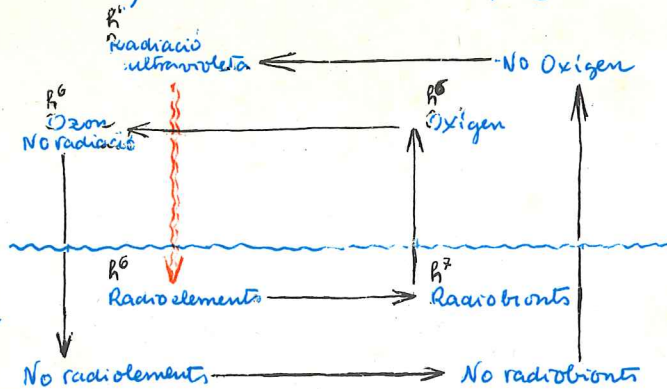 Radiació
ultravioleta
No Oxígen
h⁶
Ozon
No radiació
Oxígen
h⁶
Radioelements
h⁷
Radiobionts
No radiolements
No radiobionts